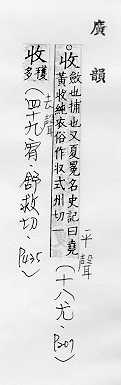 廣韻
收
斂也捕也又夏冕名史記曰堯
黄收純衣俗作収式州切一
平聲
(十八尤·P207)
收
穫
多
去聲
(四十九宥·舒救切·P435)